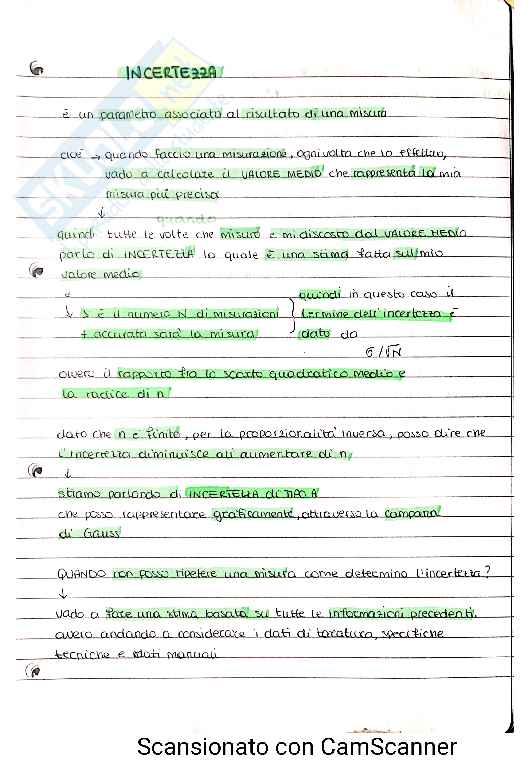 INCERTEZZA
è un parametro associato al risultato di una misura
cioè → quando faccio una misurazione, ogni volta che lo effettuo,
vado a calcolare il VALORE MEDIO che rappresenta la mia
misura più precisa
↓
quando
quindi tutte le volte che misuro e mi discosto dal VALORE MEDIO
parlo di INCERTEZZA la quale è una stima fatta sul mio
valore medio
quindi in questo caso il
↓ è il numero N di misurazioni termine dell'incertezza è
+ accurata sarà la misura dato da
σ/√N
ovvero il rapporto fra lo scarto quadratico medio e
la radice di n
dato che n è finito, per la proporzionalità inversa, posso dire che
l'incertezza diminuisce all'aumentare di n
↓
stiamo parlando di INCERTEZZA di TIPO A
che posso rappresentare graficamente, attraverso la campana
di Gauss
QUANDO non posso ripetere una misura come determino l'incertezza?
↓
vado a fare una stima basata su tutte le informazioni precedenti,
ovvero andando a considerare i dati di taratura, specifiche
tecniche e dati manuali
Scansionato con CamScanner